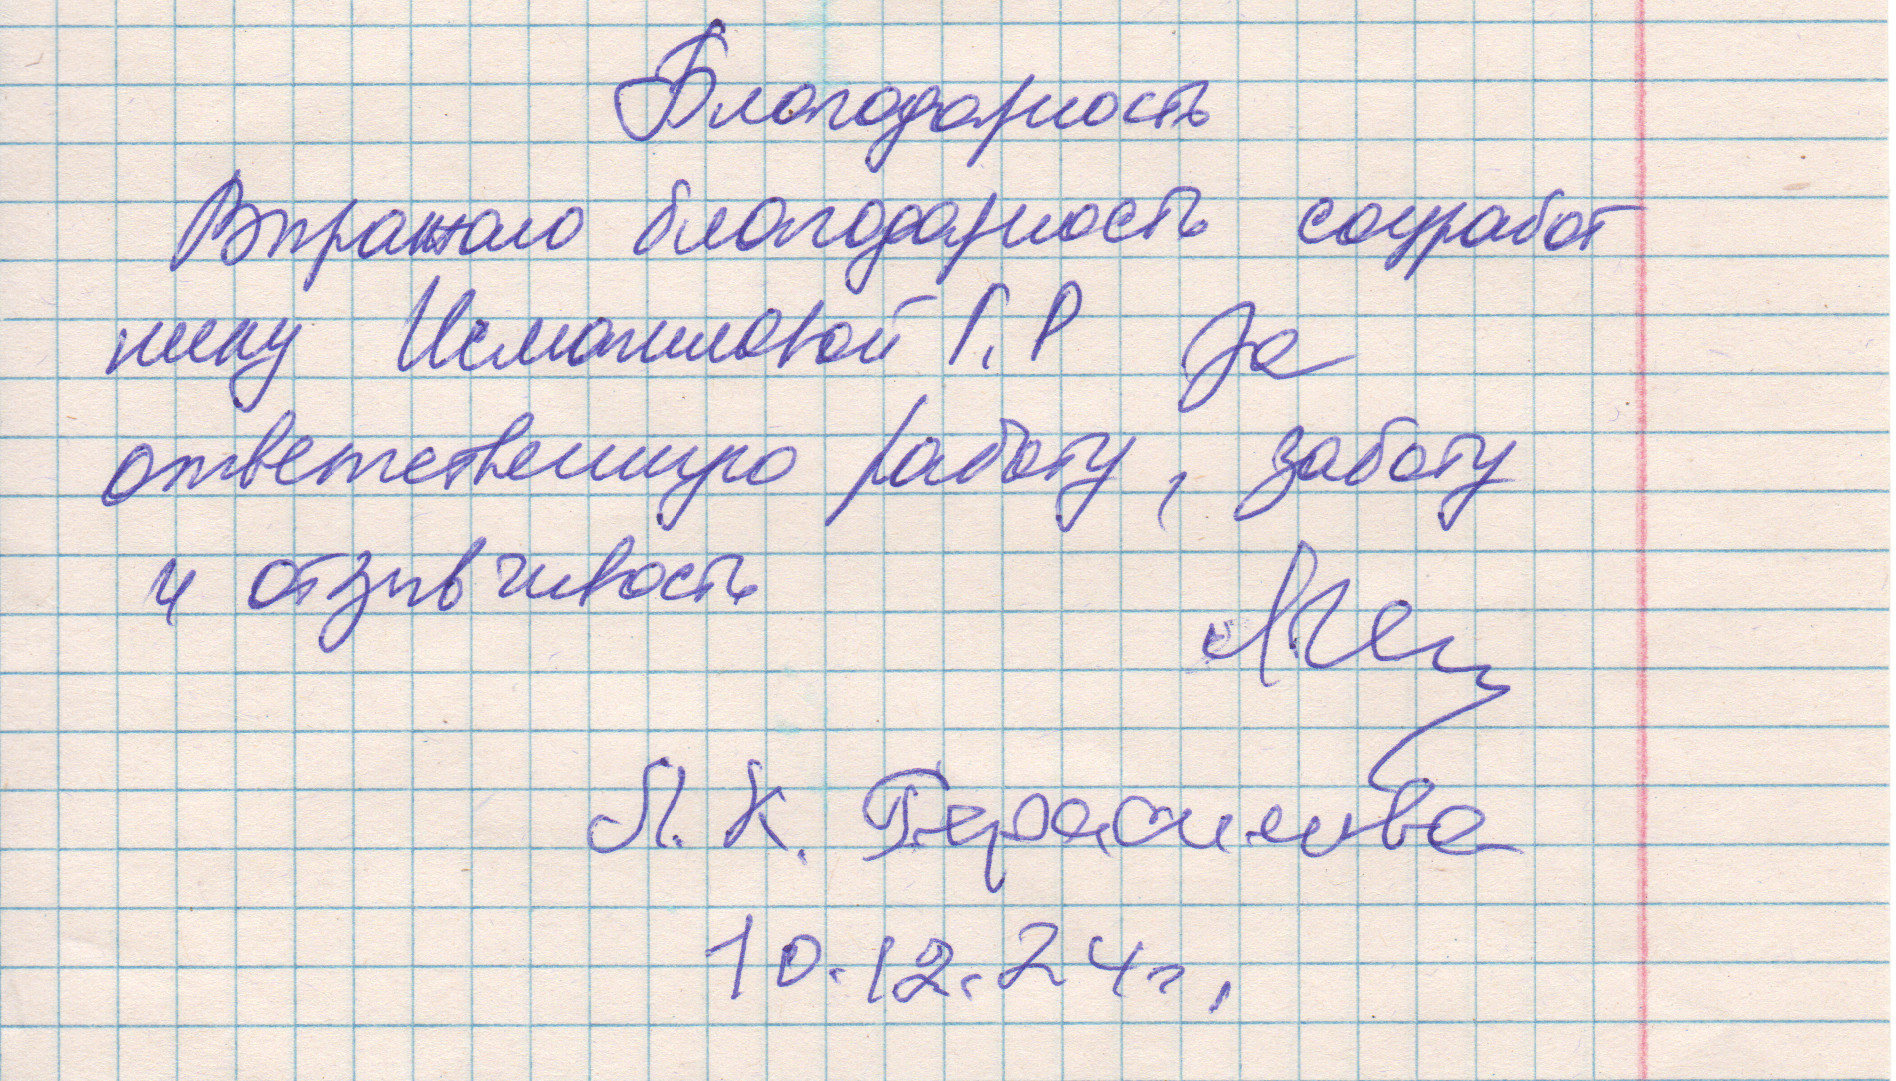 Благодарность
Выражаю благодарность соцработ
нику Исмагиловой Г.Р за
ответственную работу, заботу
и отзывчивость
Л.К. Герасимова
10.12.24г.,